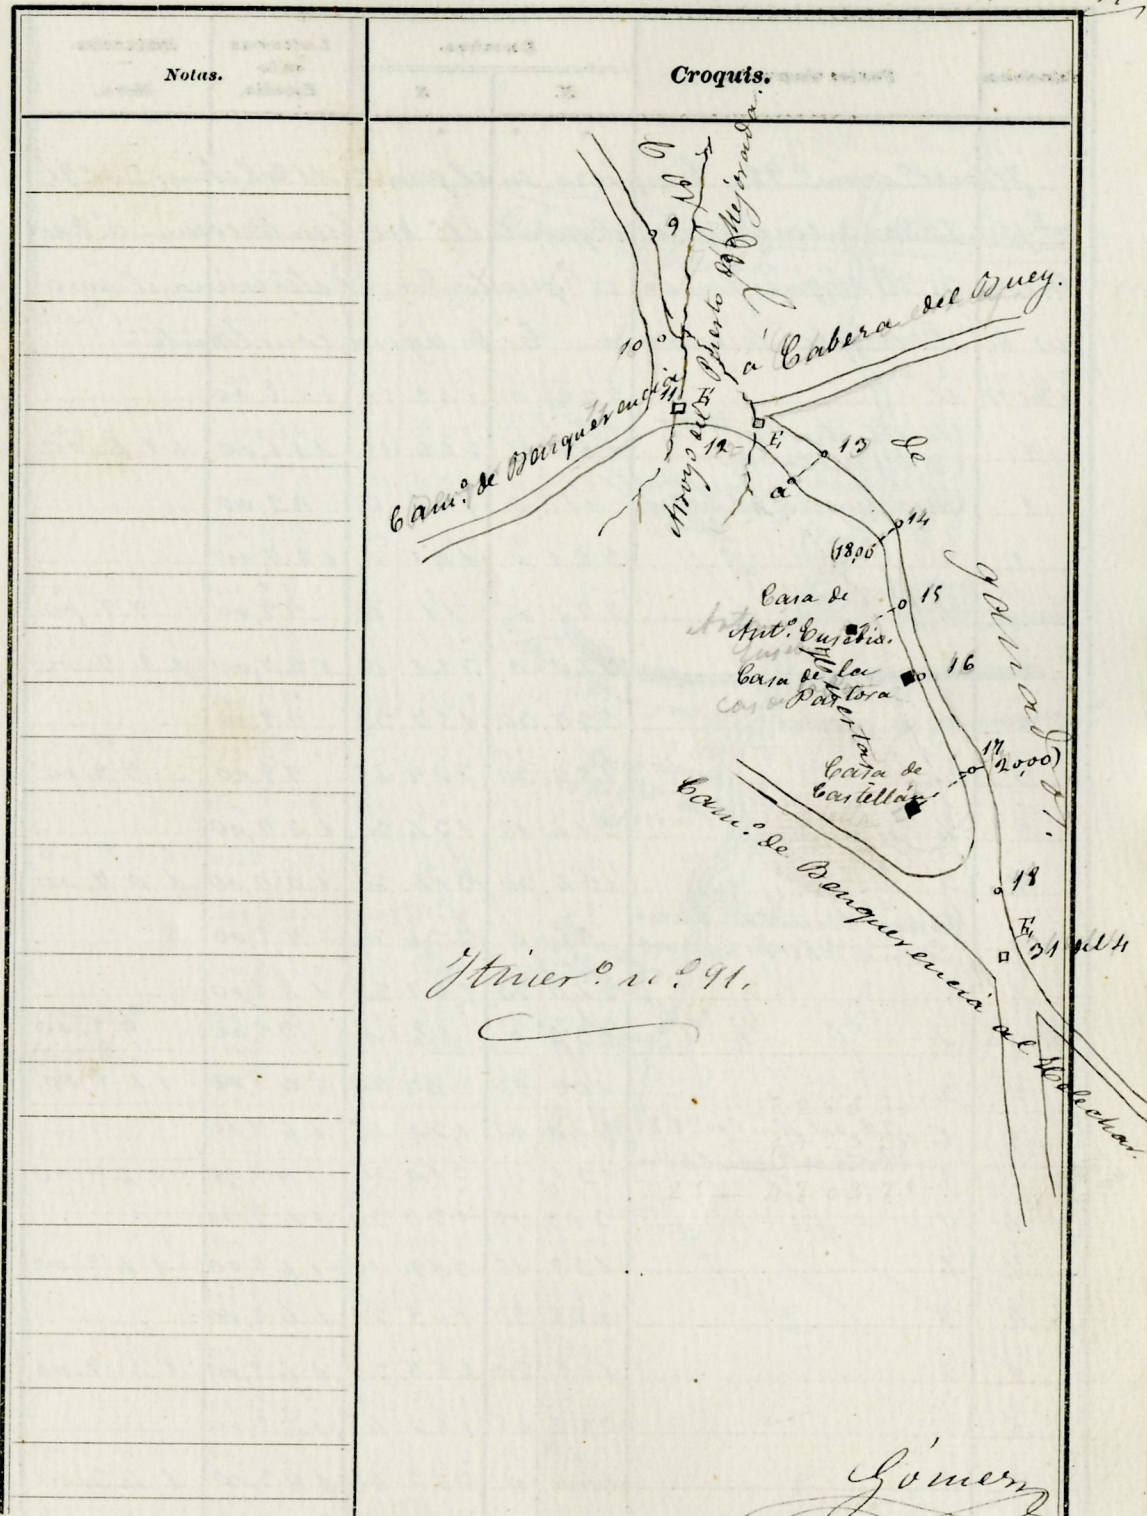 Notas.
Croquis.
9
10
11
E
Arroyo del Puerto de Mejorada.
á Cabeza del Buey.
Cam.º de Benquerencia
12
E
13
a
de
14
(18,00
ganados.
Casa de
Ant.º Eusebio.
15
Casa de la
Pastora
16
Casa de
Castellán
17
(20,00)
Cam.º de Benquerencia al Helechar.
18
E
31 del 4
Itiner.º n.º 91.
Gómez